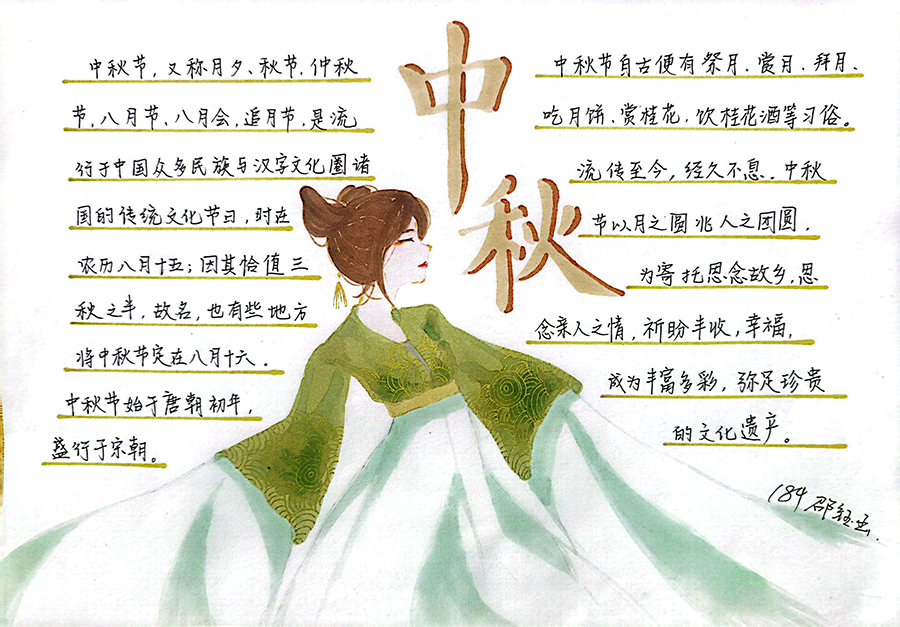 中秋
中秋节，又称月夕、秋节、仲秋
节、八月节、八月会，追月节，是流
行于中国众多民族与汉字文化圈诸
国的传统文化节日，时在
农历八月十五；因其恰值三
秋之半，故名，也有些地方
将中秋节定在八月十六．
中秋节始于唐朝初年，
盛行于宋朝。
中秋节自古便有祭月、赏月、拜月、
吃月饼、赏桂花，饮桂花酒等习俗。
流传至今，经久不息。中秋
节以月之圆兆人之团圆，
为寄托思念故乡，思
念亲人之情，祈盼丰收，幸福，
成为丰富多彩，弥足珍贵
的文化遗产。
184 邵钰